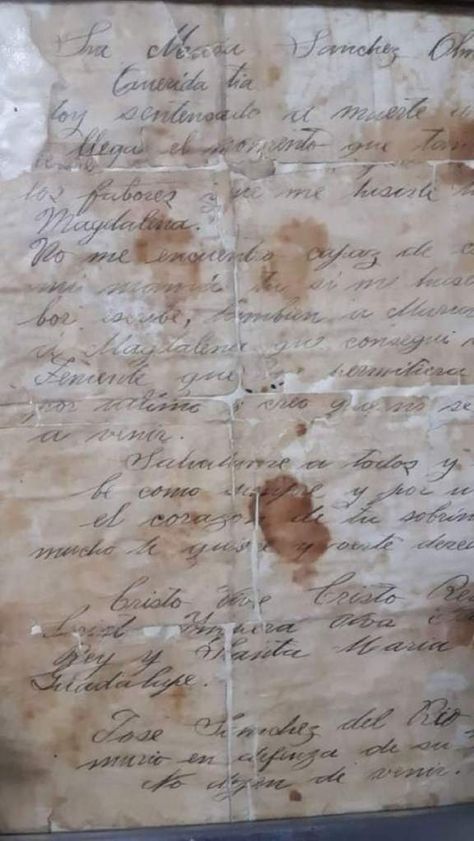 Sra Maria Sanchez Olm
Querida tia
toy sentensado a muerte a
llegá el momento que tan
los fabores que me hisiste
Magdalena.
No me encuentro capaz de
mi mamá tu si me hase
bor escribe, tambien a Maria
di Magdalena que consegui
Teniente que permitiera
por ultimo creo que no se
a venir.
Salvdame a todos y
be como siempre y por u
el corazon de tu sobrin
mucho te quiere y verte desea
Cristo vive Cristo Rei
Crist Impera viva
Rey y Santa Maria
Guadalupe.
José Sánchez del Rio
murio en defenza de su
No dejen de venir.